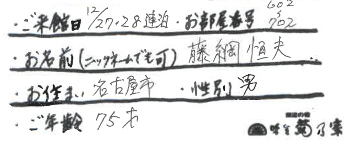 ・ご来館日 12/27・28 連泊 ・お部屋番号 602 702
・お名前(ニックネームでも可) 藤綱 恒夫
・お住まい 名古屋市 ・性別 男
・ご年齢 75才